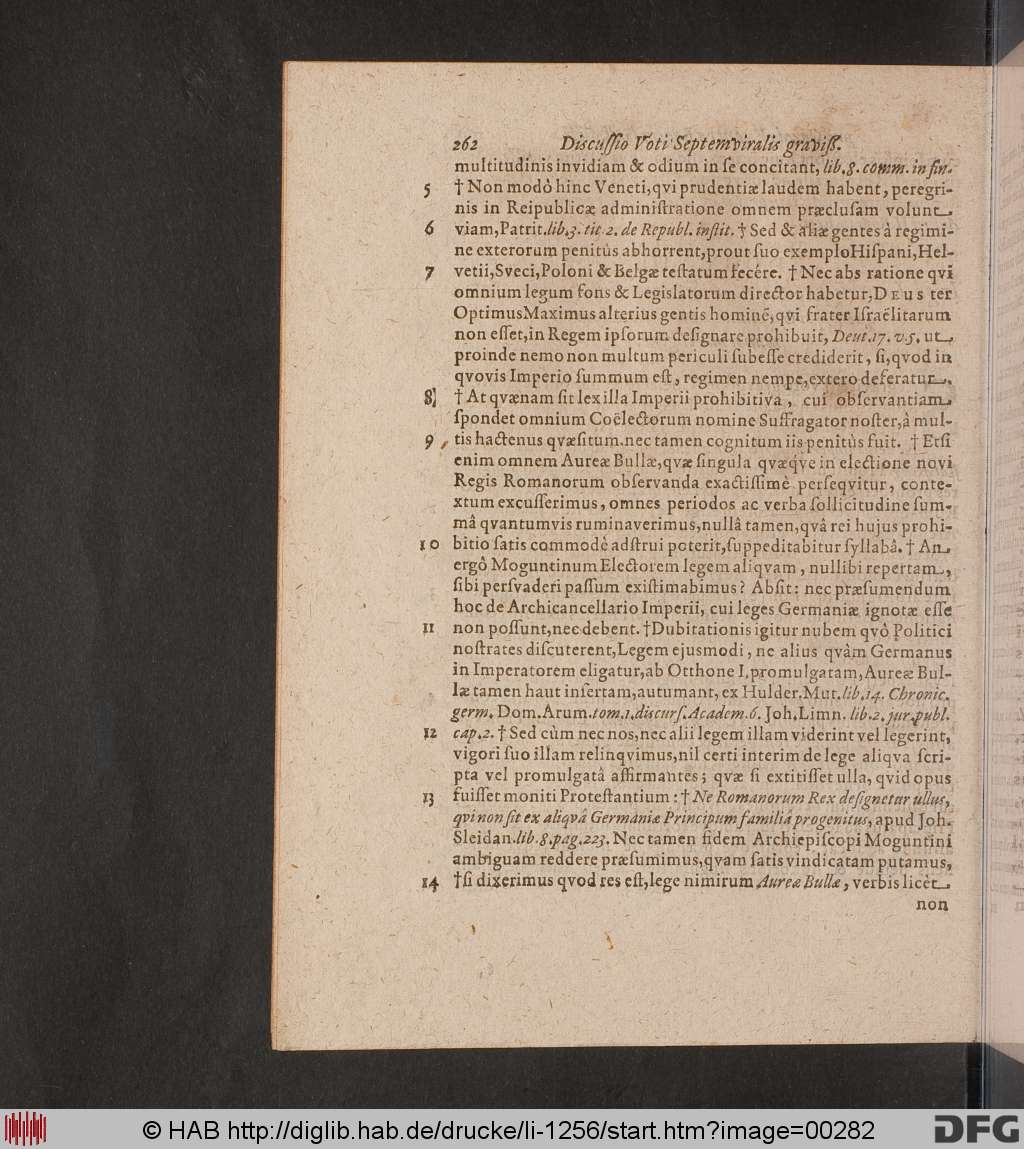 262 Discuſſio Voti Septemviralis graviſſ.
multitudinis invidiam & odium in ſe concitant, lib. 8. comm. in fin.
5 † Non modò hinc Veneti, qvi prudentiæ laudem habent, peregri-
nis in Reipublicæ adminiſtratione omnem præcluſam volunt
6 viam, Patrit. lib. 3. tit. 2. de Republ. inſtit. † Sed & aliæ gentes à regimi-
ne exterorum penitùs abhorrent, prout ſuo exemplo Hiſpani, Hel-
7 vetii, Sveci, Poloni & Belgæ teſtatum fecére. † Nec abs ratione qvi
omnium legum fons & Legislatorum director habetur, DEUS ter
Optimus Maximus alterius gentis hominē, qvi frater Iſraëlitarum
non eſſet, in Regem ipſorum deſignare prohibuit, Deut. 17. v. 5. ut
proinde nemo non multum periculi ſubeſſe crediderit, ſi, qvod in
qvovis Imperio ſummum eſt, regimen nempe, extero deferatur.
8 † At qvænam ſit lex illa Imperii prohibitiva, cui obſervantiam
ſpondet omnium Coëlectorum nomine Suffragator noſter, à mul-
9 tis hactenus qvæſitum. nec tamen cognitum iis penitùs fuit. † Etſi
enim omnem Aureæ Bullæ, qvæ ſingula qvæqve in electione novi
Regis Romanorum obſervanda exactiſſimè perſeqvitur, conte-
xtum excuſſerimus, omnes periodos ac verba ſollicitudine ſum-
mâ qvantumvis ruminaverimus, nullâ tamen, qvâ rei hujus prohi-
10 bitio ſatis commodè adſtrui poterit, ſuppeditabitur ſyllabâ. † An
ergò Moguntinum Electorem legem aliqvam, nullibi repertam,
ſibi perſvaderi paſſum exiſtimabimus? Abſit: nec præſumendum
hoc de Archicancellario Imperii, cui leges Germaniæ ignotæ eſſe
11 non poſſunt, nec debent. † Dubitationis igitur nubem qvò Politici
noſtrates diſcuterent, Legem ejusmodi, ne alius qvàm Germanus
in Imperatorem eligatur, ab Otthone I. promulgatam, Aureæ Bul-
læ tamen haut inſertam, autumant, ex Hulder. Mut. lib. 14. Chronic.
germ. Dom. Arum. tom. 1. diſcurſ. Academ. 6. Joh. Limn. lib. 2. jur. publ.
12 cap. 2. † Sed cùm nec nos, nec alii legem illam viderint vel legerint,
vigori ſuo illam relinqvimus, nil certi interim de lege aliqva ſcri-
pta vel promulgatâ affirmantes; qvæ ſi extitiſſet ulla, qvid opus
13 fuiſſet moniti Proteſtantium: † Ne Romanorum Rex deſignetur ullus,
qvi non ſit ex aliqvâ Germaniæ Principum familiâ progenitus, apud Joh.
Sleidan. lib. 8. pag. 223. Nec tamen fidem Archiepiſcopi Moguntini
ambiguam reddere præſumimus, qvam ſatis vindicatam putamus,
14 † ſi dixerimus qvod res eſt, lege nimirum Aureæ Bullæ, verbis licèt
non
© HAB http://diglib.hab.de/drucke/li-1256/start.htm?image=00282
DFG